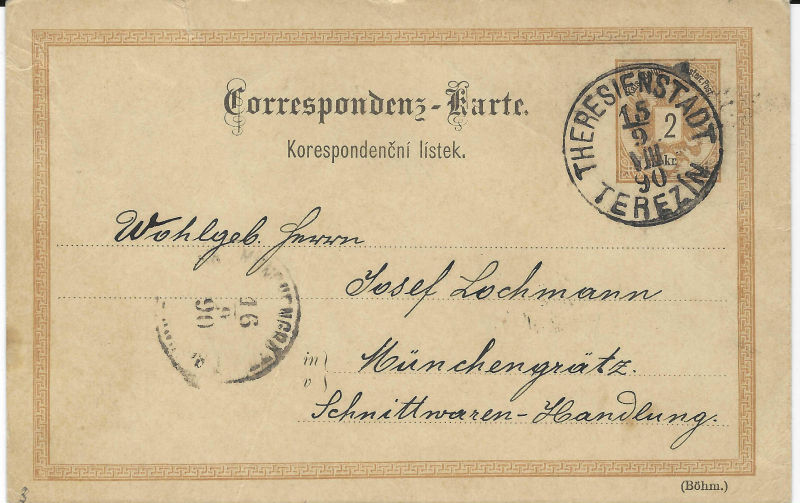 Correspondenz-Karte.
Korespondenční lístek.
THERESIENSTADT
15
9
VIII
90
TEREZÍN
2
kr.
Wohlgeb. Herrn
Josef Lochmann
16
90
in
v
Münchengrätz.
Schnittwaren-Handlung.
(Böhm.)
3